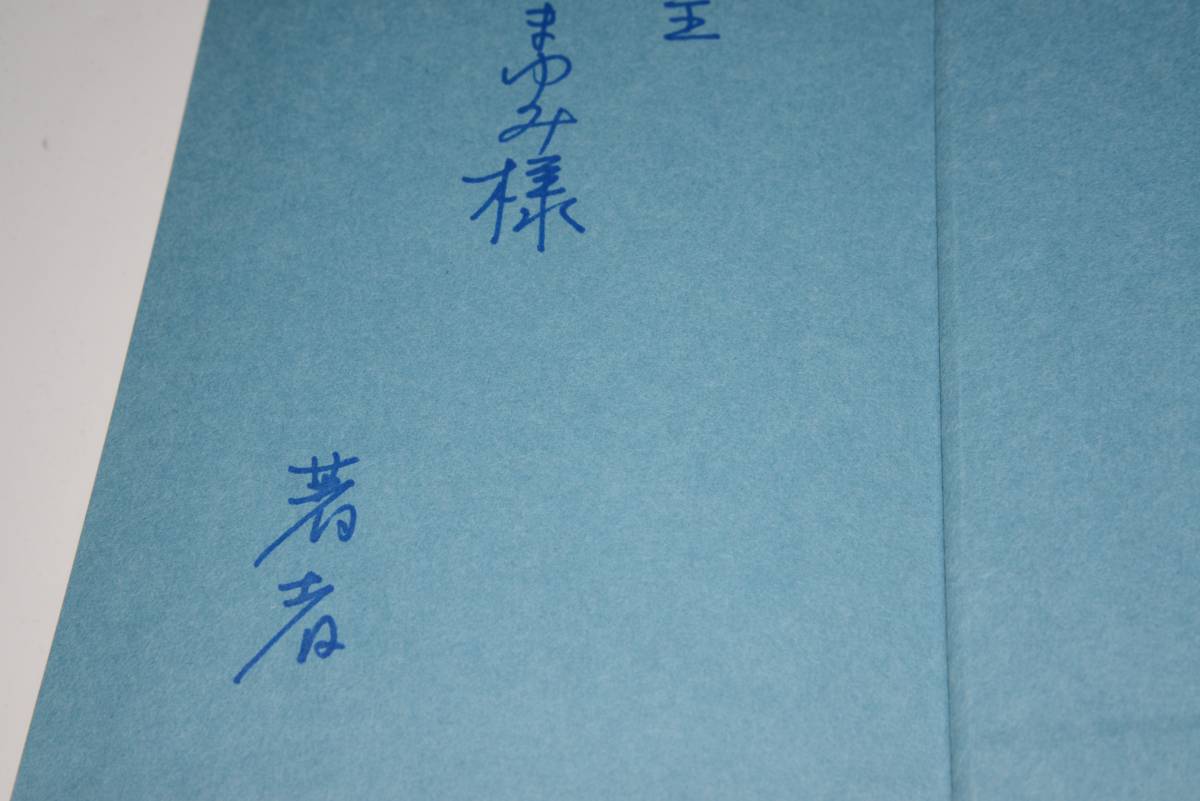 まゆみ様
著者